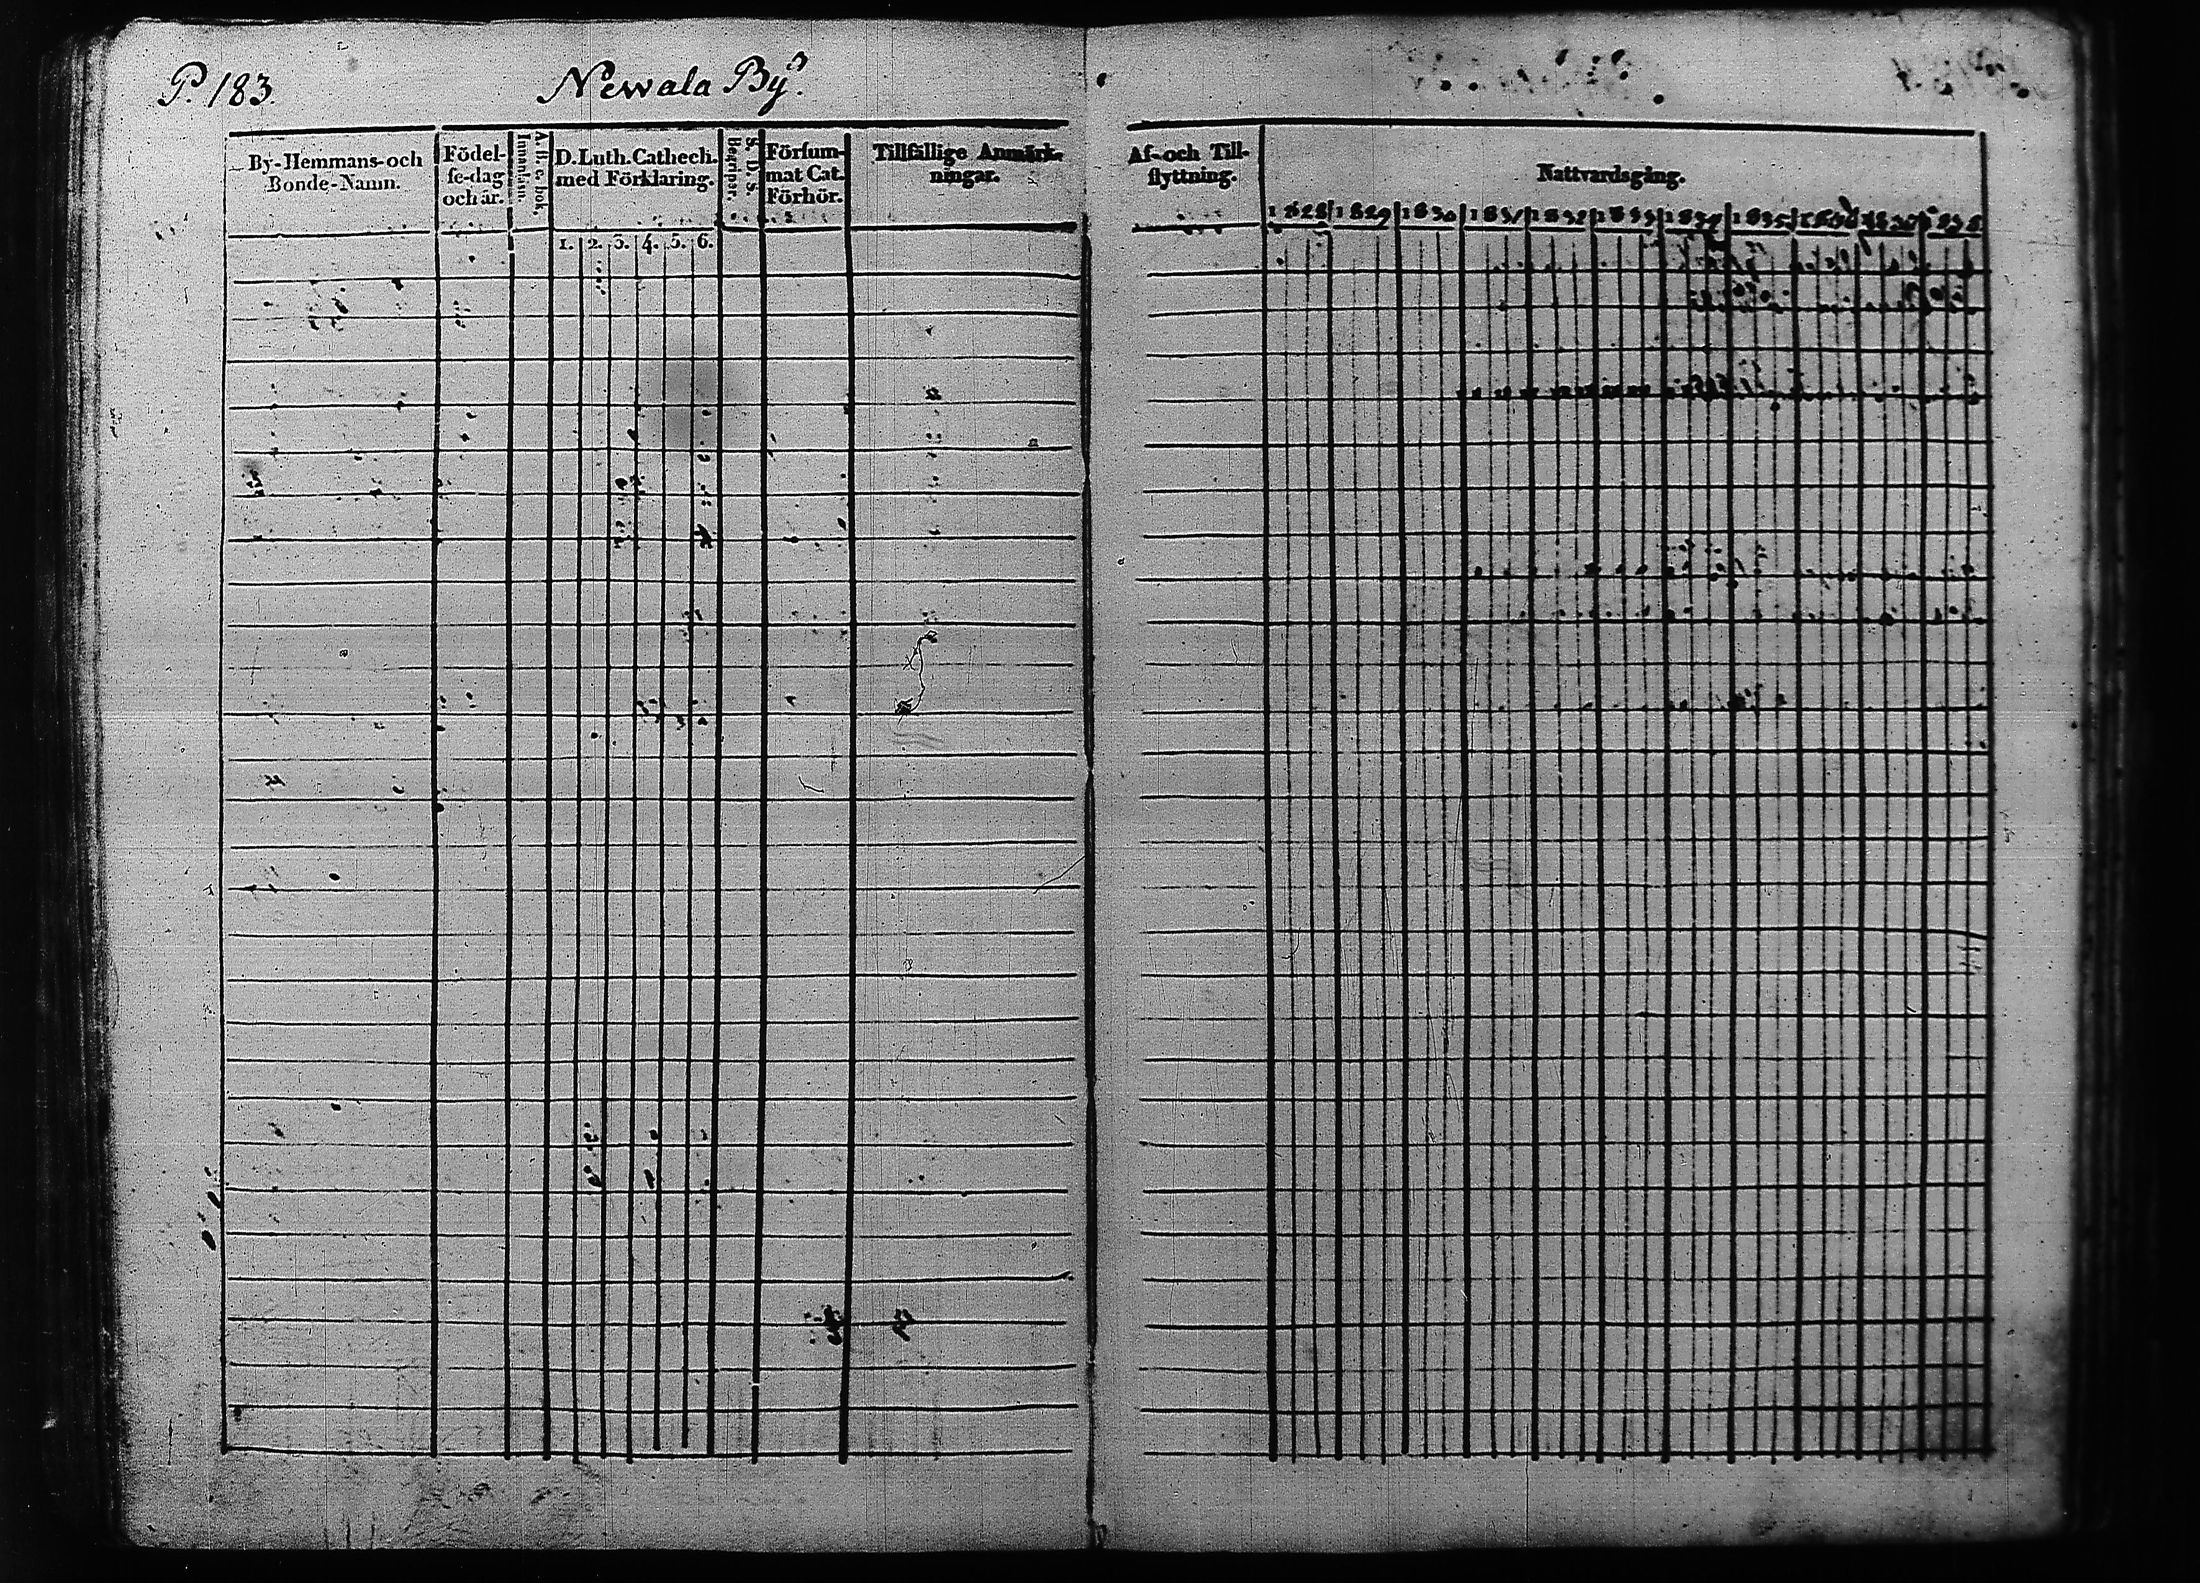 P. 183.
Newala By.
By-Hemmans-och
Bonde-Namn.
Födel-
se-dag
och år.
A. B. c. bok,
Innanläsn.
D. Luth. Cathech.
med Förklaring.
1. 2. 3. 4. 5. 6.
S. D. S.
Begripar.
Försum-
mat Cat.
Förhör.
Tillfällige Anmärk-
ningar.
Af-och Till-
flyttning.
Nattvardsgång.
1828 1829 1830 1831 1832 1833 1834 1835 1836 1837 1838